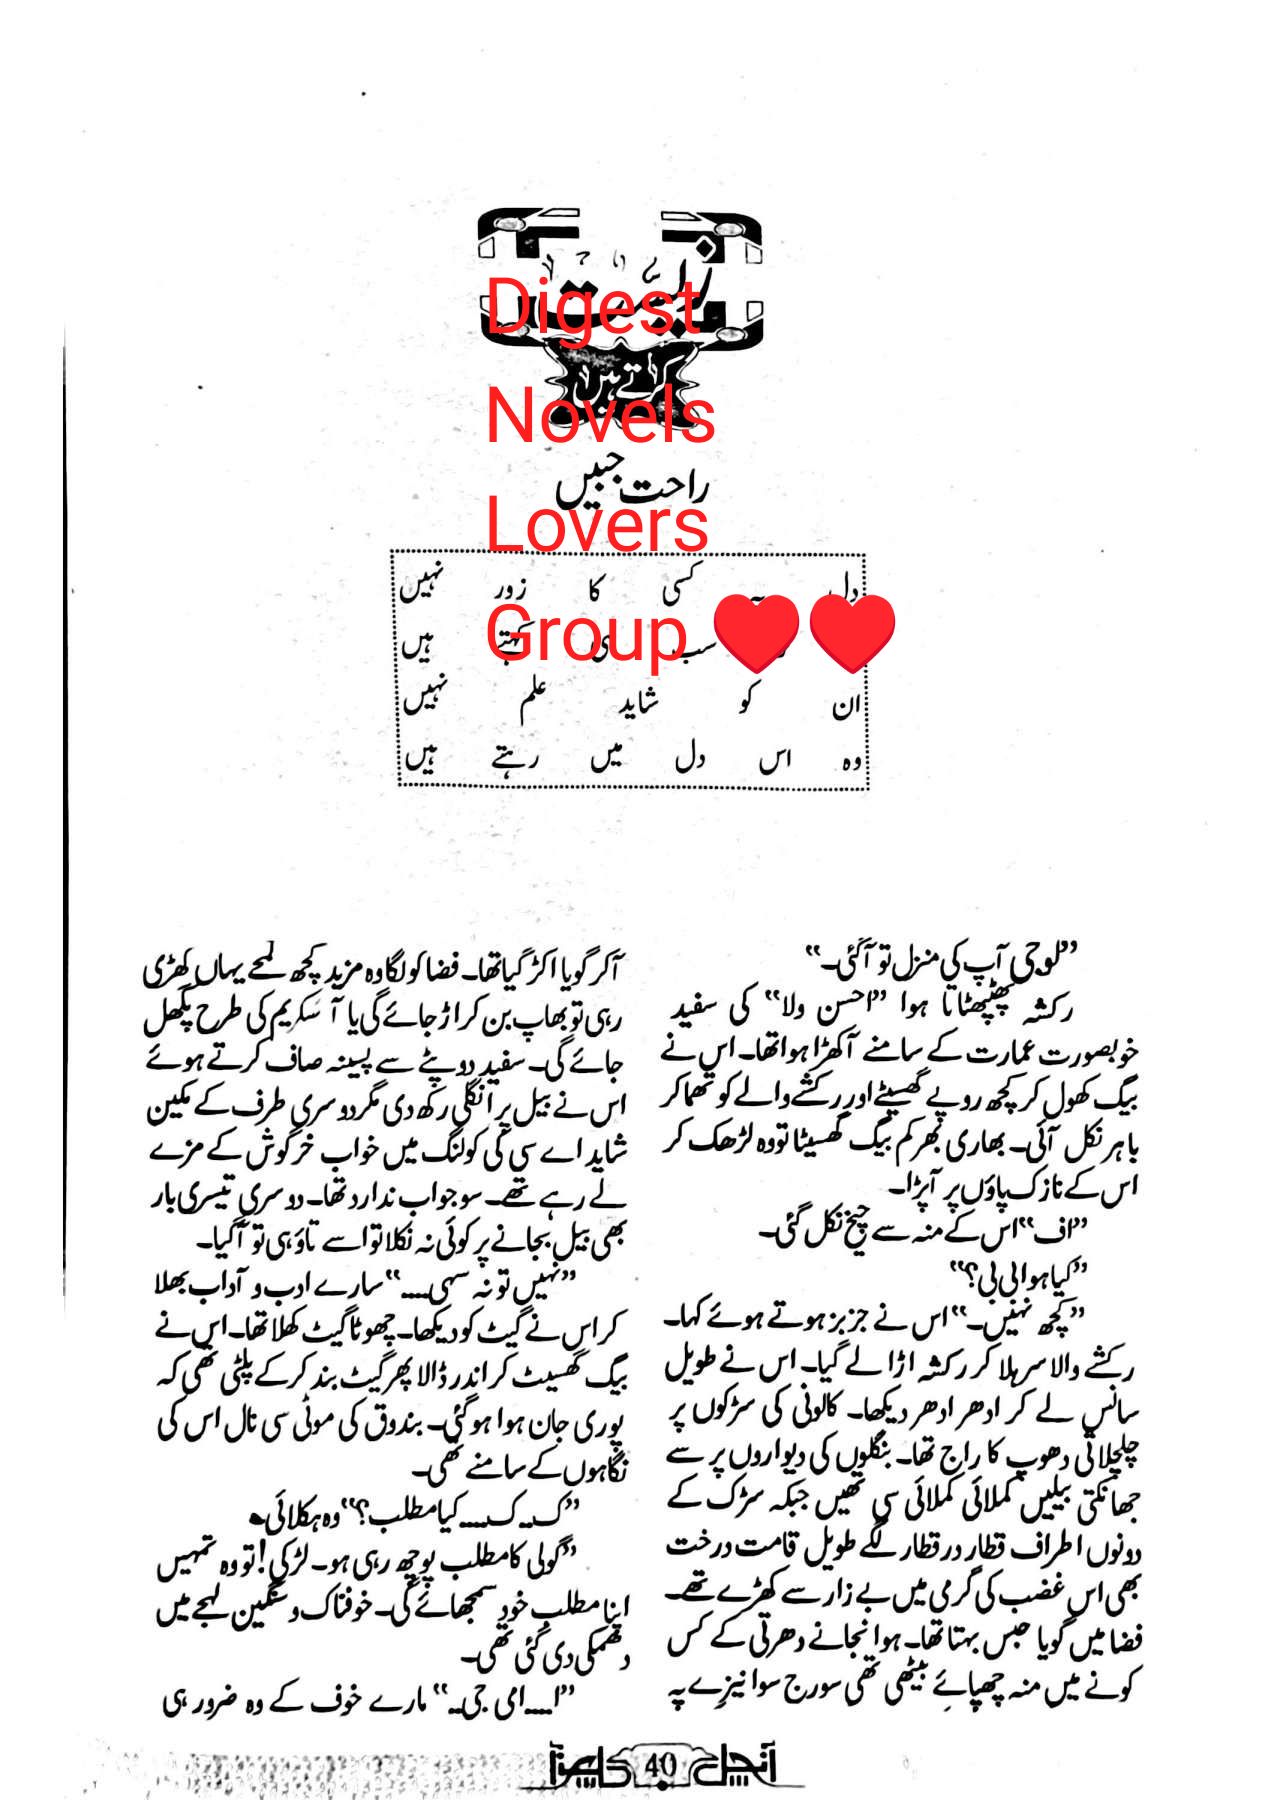 زیست
کرتے ہیں
Digest
Novels
Lovers
Group ❤❤
راحت جبیں
دل کسی کا زور نہیں
سب ہی کہتے ہیں
ان کو شاید علم نہیں
وہ اس دل میں رہتے ہیں
”لوجی آپ کی منزل تو آگئی۔“
رکشہ پھٹپھٹاتا ہوا ”احسن ولا“ کی سفید
خوبصورت عمارت کے سامنے آکھڑا ہوا تھا۔ اس نے
بیگ کھول کر کچھ روپے گھسیٹے اور رکشے والے کو تھما کر
باہر نکل آئی۔ بھاری بھرکم بیگ گھسیٹا تو وہ لڑھک کر
اس کے نازک پاؤں پر آپڑا۔
”اف“ اس کے منہ سے چیخ نکل گئی۔
”کیا ہوا بی بی؟“
”کچھ نہیں۔“ اس نے جزبز ہوتے ہوئے کہا۔
رکشے والا سر ہلا کر رکشہ اڑا لے گیا۔ اس نے طویل
سانس لے کر ادھر ادھر دیکھا۔ کالونی کی سڑکوں پر
چلچلاتی دھوپ کا راج تھا۔ بنگلوں کی دیواروں پر سے
جھانکتی بیلیں کملائی کملائی سی تھیں جبکہ سڑک کے
دونوں اطراف قطار در قطار لگے طویل قامت درخت
بھی اس غضب کی گرمی میں بے زار سے کھڑے تھے۔
فضا میں گویا حبس بہتا تھا۔ ہوا نجانے دھرتی کے کس
کونے میں منہ چھپائے بیٹھی تھی سورج سوا نیزے پہ
آکر گویا اکڑ گیا تھا۔ فضا کو لگا وہ مزید کچھ لمحے یہاں کھڑی
رہی تو بھاپ بن کر اڑ جائے گی یا آئسکریم کی طرح پگھل
جائے گی۔ سفید دوپٹے سے پسینہ صاف کرتے ہوئے
اس نے بیل پر انگلی رکھ دی مگر دوسری طرف کے مکین
شاید اے سی کی کولنگ میں خواب خرگوش کے مزے
لے رہے تھے۔ سو جواب ندارد تھا۔ دوسری تیسری بار
بھی بیل بجانے پر کوئی نہ نکلا تو اسے تاؤ ہی تو آگیا۔
”نہیں تو نہ سہی....“ سارے ادب و آداب بھلا
کر اس نے گیٹ کو دیکھا۔ چھوٹا گیٹ کھلا تھا۔ اس نے
بیگ گھسیٹ کر اندر ڈالا پھر گیٹ بند کرکے پلٹی تھی کہ
پوری جان ہوا ہوگئی۔ بندوق کی موٹی سی نال اس کی
نگاہوں کے سامنے تھی۔
”ک.. ک.... کیا مطلب؟“ وہ ہکلائی۔
”گولی کا مطلب پوچھ رہی ہو۔ لڑکی! تو وہ تمہیں
اپنا مطلب خود سمجھائے گی۔ خوفناک و سنگین لہجے میں
دھمکی دی گئی تھی۔
”ا.... امی جی..“ مارے خوف کے وہ ضرور ہی
آنچل 40